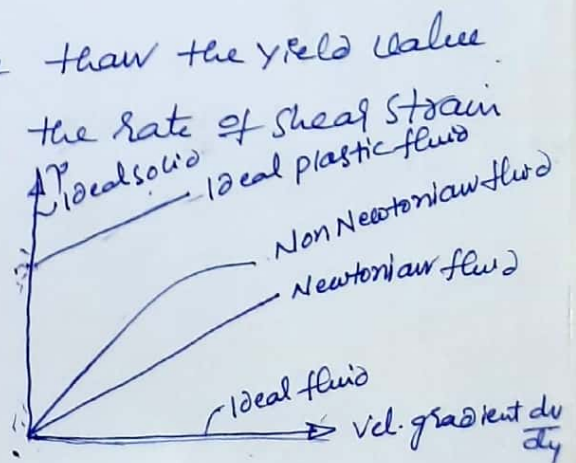 than the yield value
the rate of shear strain
τ
Ideal solid
Ideal plastic fluid
Non Newtonian fluid
Newtonian fluid
Ideal fluid
Vel. gradient du/dy